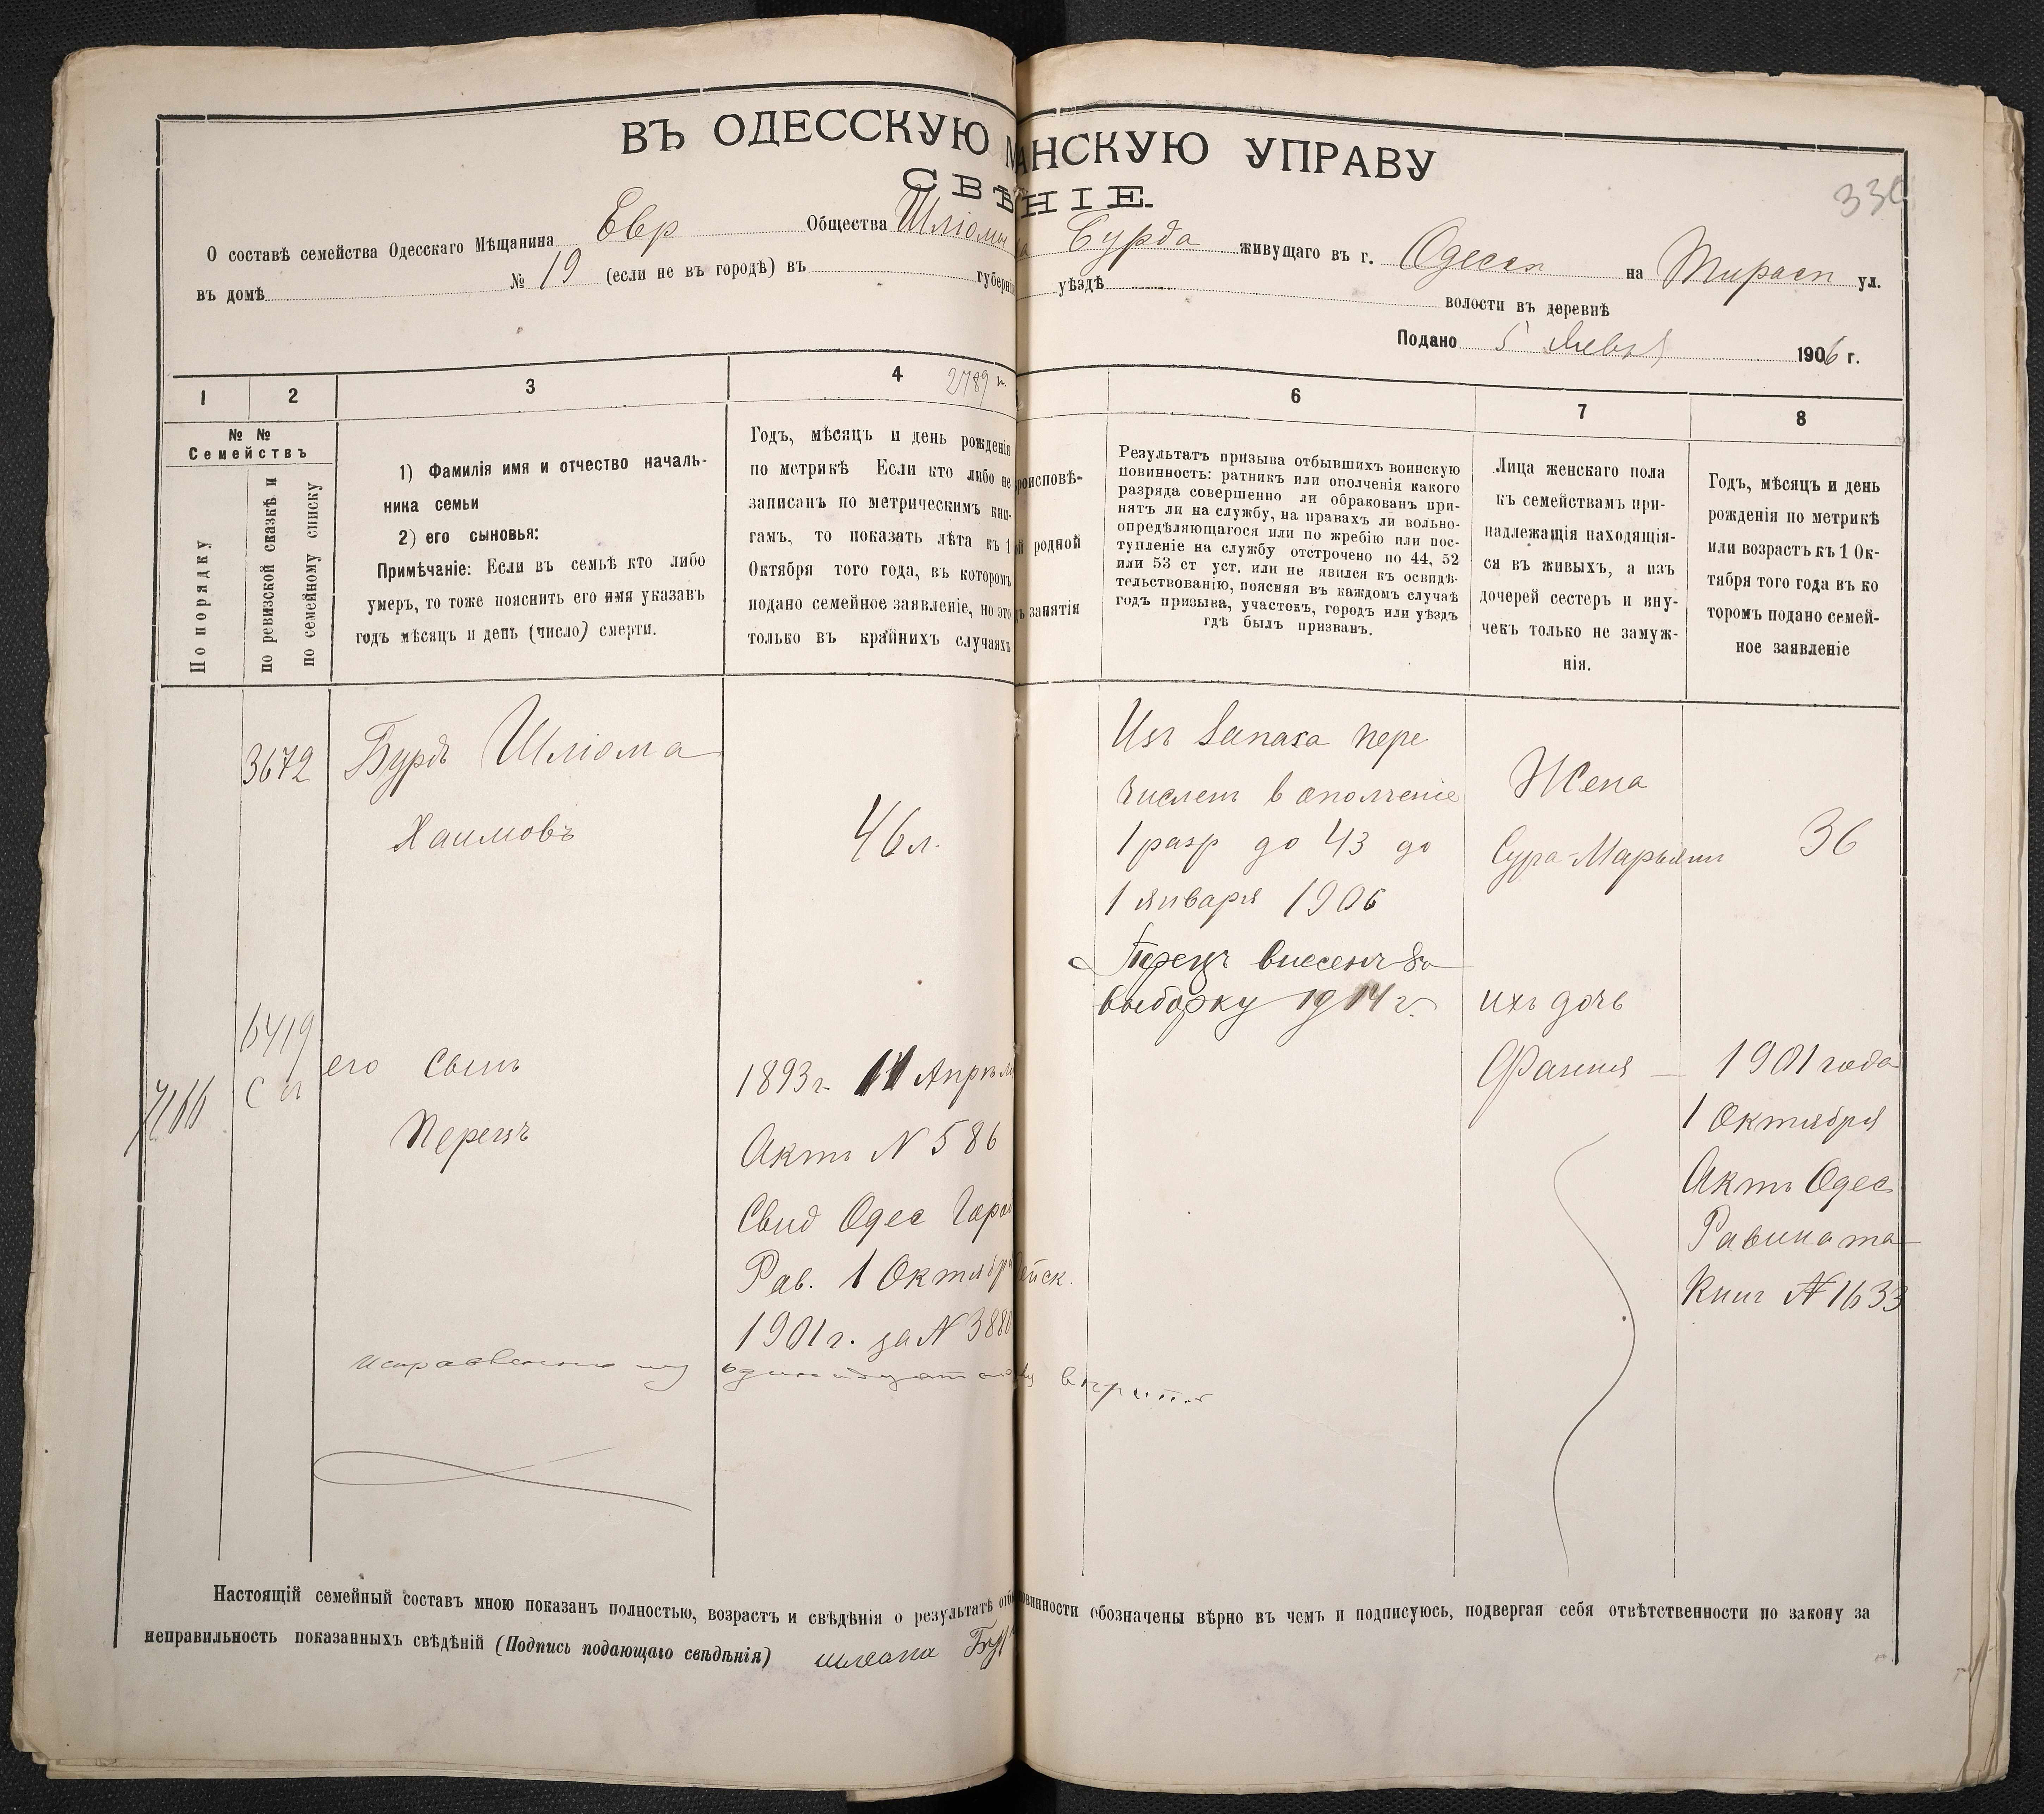 ВЪ ОДЕССКУЮ М АНСКУЮ УПРАВУ
СВѢ НІЕ
О составѣ семейства Одесскаго Мѣщанина Евр Общества Шліомы Бурда живущаго въ г. Одессѣ на Тирасп ул.
въ домѣ № 19 (если не въ городѣ) въ губерніи уѣздѣ волости въ деревнѣ
Подано 5 1906 г.
1 2 3 4 2789 6 7 8
№ №
Семействъ
По порядку
по ревизской сказкѣ и
по семейному списку
1) Фамилія имя и отчество началь-
ника семьи
2) его сыновья:
Примѣчаніе: Если въ семьѣ кто либо
умеръ, то тоже пояснить его имя указавъ
годъ мѣсяцъ и день (число) смерти.
Годъ, мѣсяцъ и день рожденія
по метрикѣ Если кто либо не
записанъ по метрическимъ кни-
гамъ, то показать лѣта къ 1
Октября того года, въ которомъ
подано семейное заявленіе, но это
только въ крайнихъ случаяхъ
роисповѣ-
й родной
ъ занятія
Результатъ призыва отбывшихъ воинскую
повинность: ратникъ или ополченія какого
разряда совершенно ли обракованъ при-
нятъ ли на службу, на правахъ ли вольно-
опредѣляющагося или по жребію или пос-
тупленіе на службу отстрочено по 44, 52
или 53 ст уст. или не явился къ освидѣ-
тельствованію, поясняя въ каждомъ случаѣ
годъ призыва, участокъ, городъ или уѣздъ
гдѣ былъ призванъ.
Лица женскаго пола
къ семействамъ при-
надлежащія находящія-
ся въ живыхъ, а изъ
дочерей сестеръ и вну-
чекъ только не замуж-
нія.
Годъ, мѣсяцъ и день
рожденія по метрикѣ
или возрастъ къ 1 Ок-
тября того года въ ко
торомъ подано семей-
ное заявленіе
3672
Бурдъ Шліома
Хаимовъ
46 л.
Изъ Запаса пере
численъ в ополченіе
1 разр до 43 до
1 января 1906
Перецъ внесенъ въ
выборку 1914 г.
Жена
Сура-Марьямъ
36
7166
6419
его Сынъ
Перецъ
1893 г. 11 Апрѣля
Актъ N 586
Свид Одес Город
Рав. 1 Октября
1901 г. за N 388
ейск.
ихъ дочь
Фания
1901 года
1 Октября
Актъ Одес
Равината
Книг N 1633
Настоящій семейный составъ мною показанъ полностью, возрастъ и свѣдѣнія о результатѣ отб овинности обозначены вѣрно въ чемъ и подписуюсь, подвергая себя отвѣтственности по закону за
неправильность показанныхъ свѣдѣній (Подпись подающаго свѣдѣнія) Шліома Бур